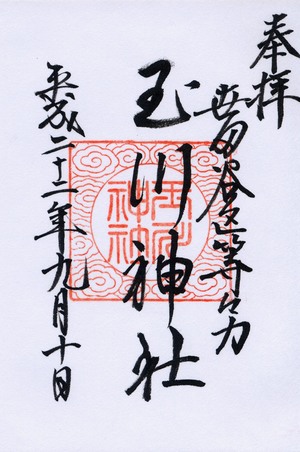 奉拝
世田谷区等々力
玉川神社
玉川神社
平成二十二年九月十日